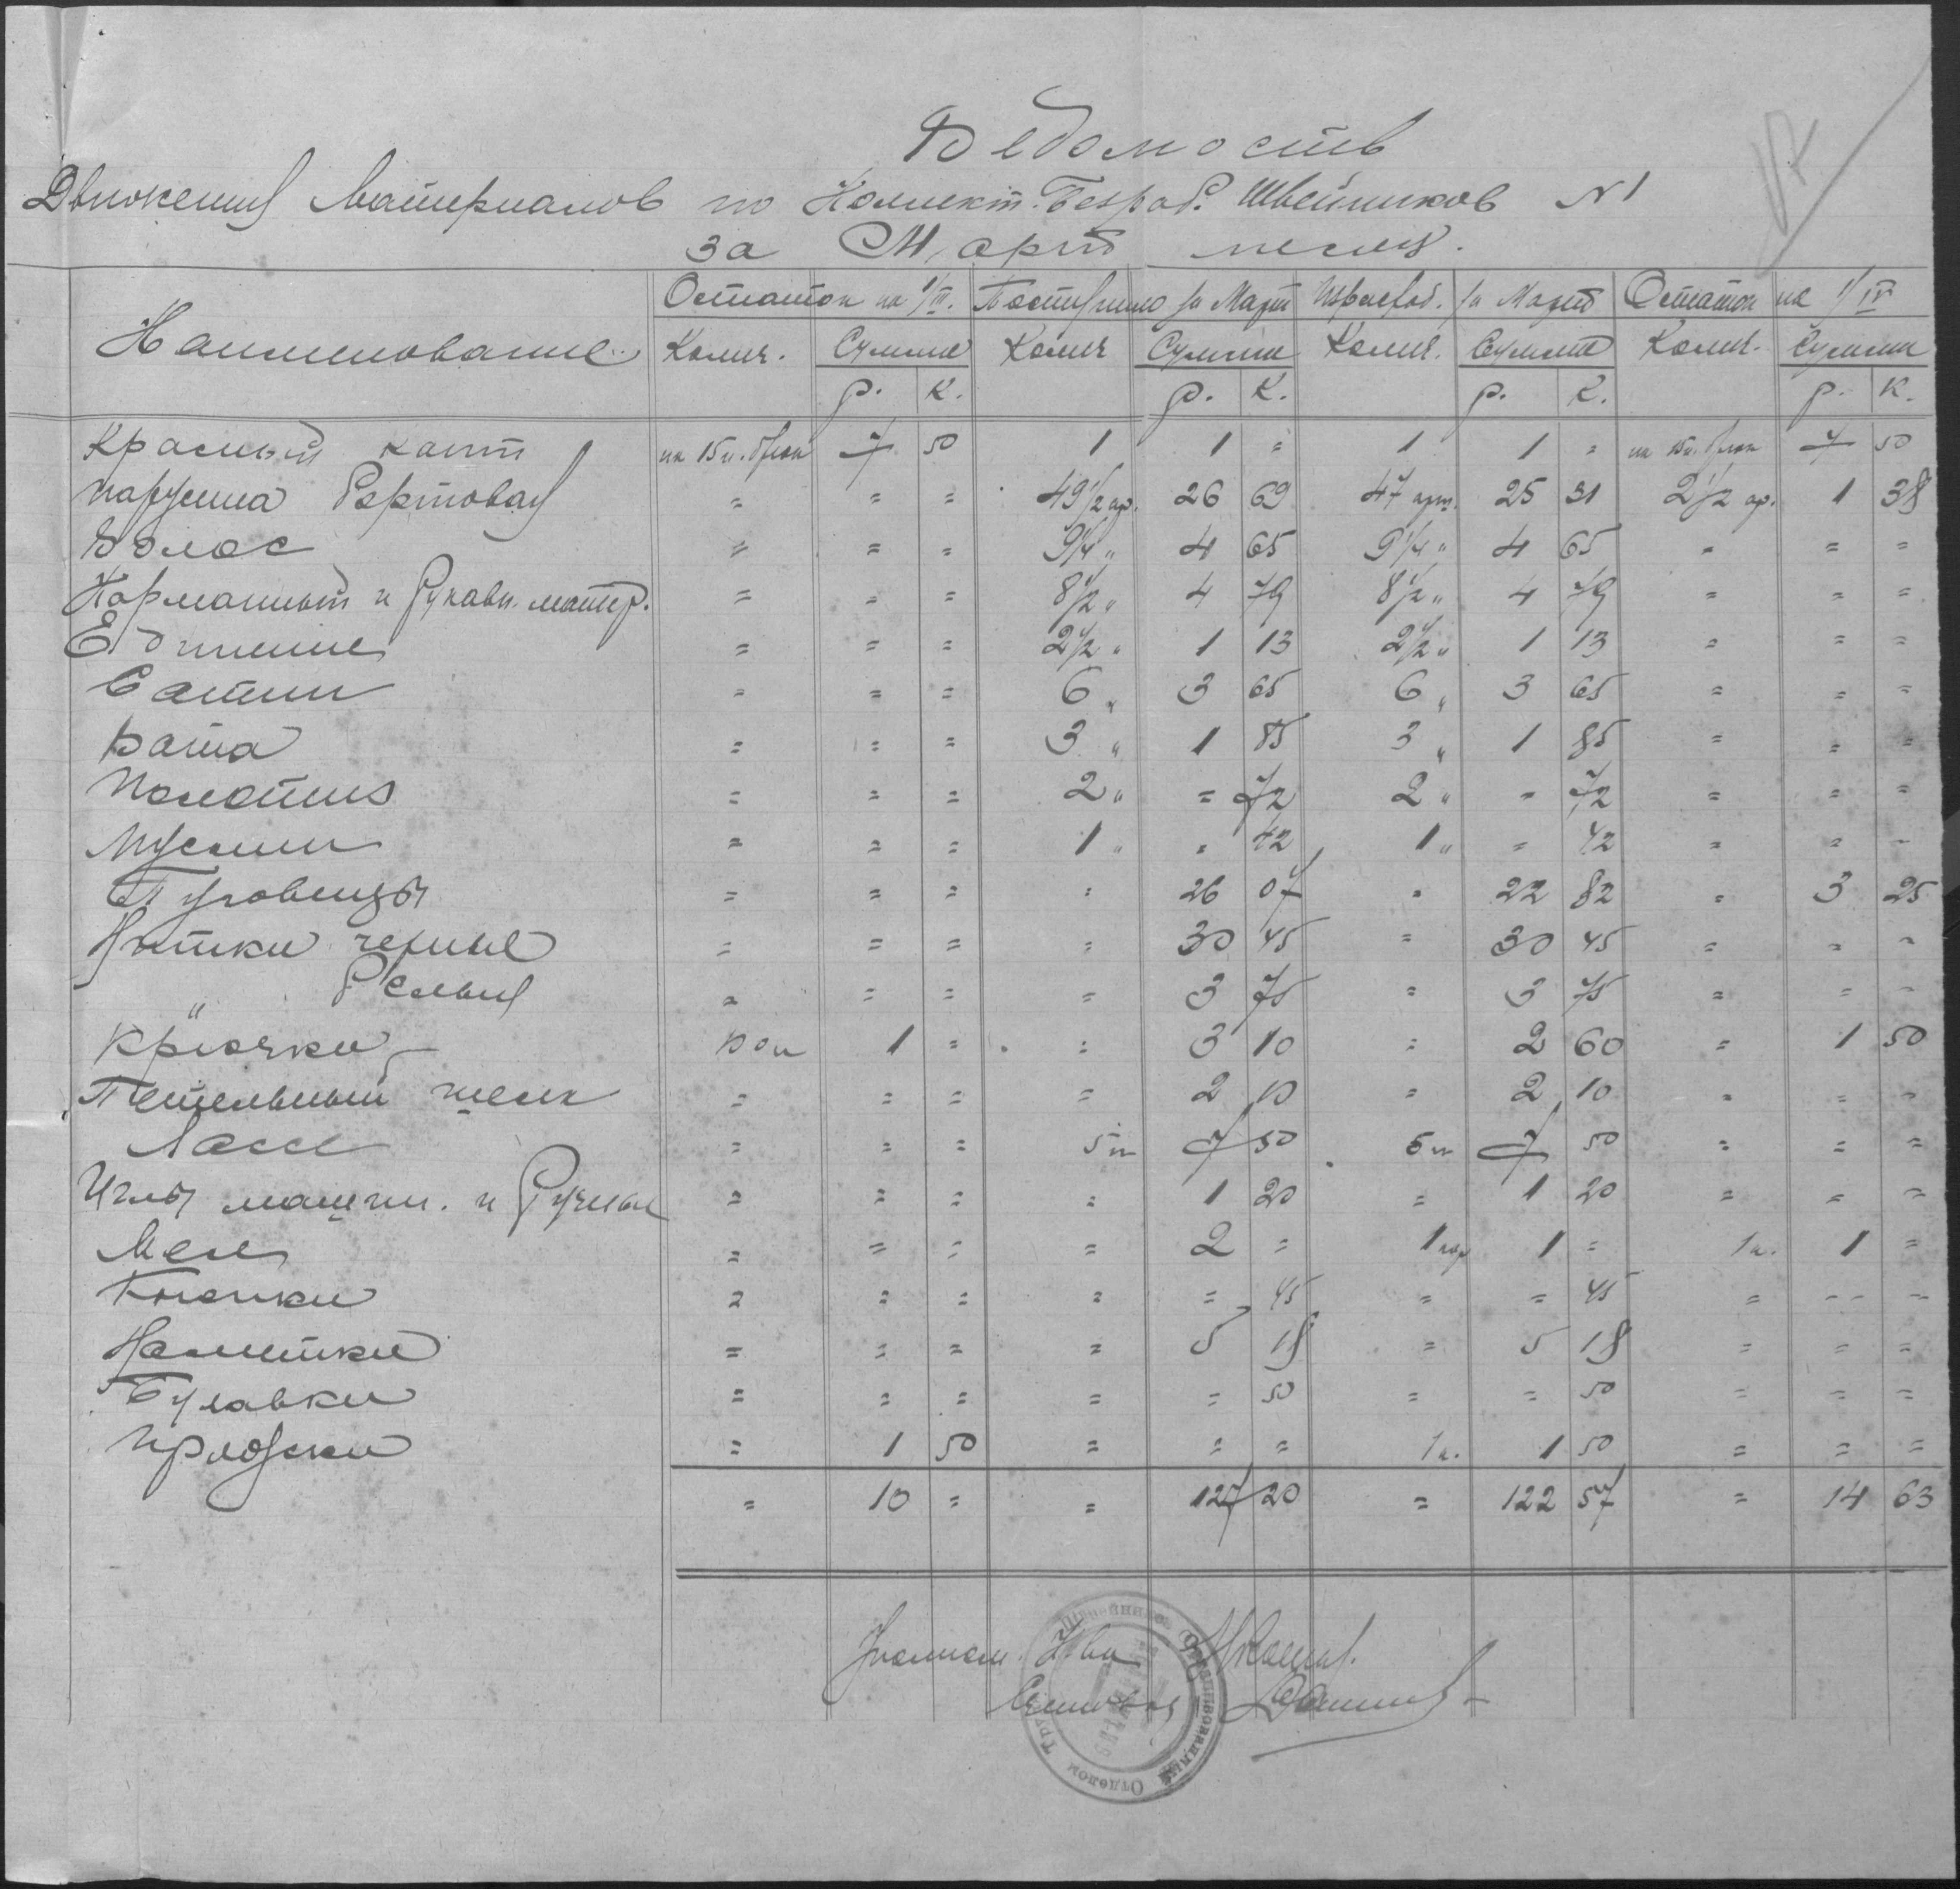 Ведомость
Движения Материалов по Коллект. Безраб. Швейников N 1
за Март месяц.
Наименование Остаток на 1/III. Поступило за Март Израсход. за Март Остаток на 1/IV
Колич. Сумма Колич Сумма Колич. Сумма Колич. Сумма
р. к. р. к. р. к. р. к.
Красный кант на 15 п. брюк 7 50 1 1 = 1 1 = на 15 п. брюк 7 50
Парусина бортовая = = = 49 1/2 ар. 26 69 47 арш. 25 31 2 1/2 ар. 1 38
Волос = = = 9 1/4 " 4 65 9 1/4 " 4 65 = = =
Карманный и Рукавн. матер. = = = 8 1/2 " 4 79 8 1/2 " 4 79 = = =
= = = 2 1/2 " 1 13 2 1/2 " 1 13 = = =
Сатин = = = 6 " 3 65 6 " 3 65 = = =
Вата = = = 3 " 1 85 3 " 1 85 = = =
Полотно = = = 2 " = 72 2 " = 72 = = =
Муслин = = = 1 " = 42 1 " = 42 = = =
Пуговицы = = = = 26 07 = 22 82 = 3 25
Нитки черные = = = = 30 45 = 30 45 = = =
" Белые = = = = 3 75 = 3 75 = = =
Крючки 1 = = 3 10 = 2 60 = 1 50
Петельный шелк = = = = 2 10 = 2 10 = = =
= = = 5 п 7 50 5 п 7 50 = = =
Иглы машин. и Ручные = = = = 1 20 = 1 20 = = =
Мел = = = = 2 = 1 кор 1 = 1 к. 1 =
Кнопки = = = = = 45 = = 45 = = =
Наметка = = = = 5 18 = 5 18 = = =
Булавки = = = = = 50 = = 50 = = =
Пряжки = 1 50 = = = 1 к. 1 50 = = =
= 10 = = 127 20 = 122 57 = 14 63
Уполном.
Счетовод
Швейников
Отделом